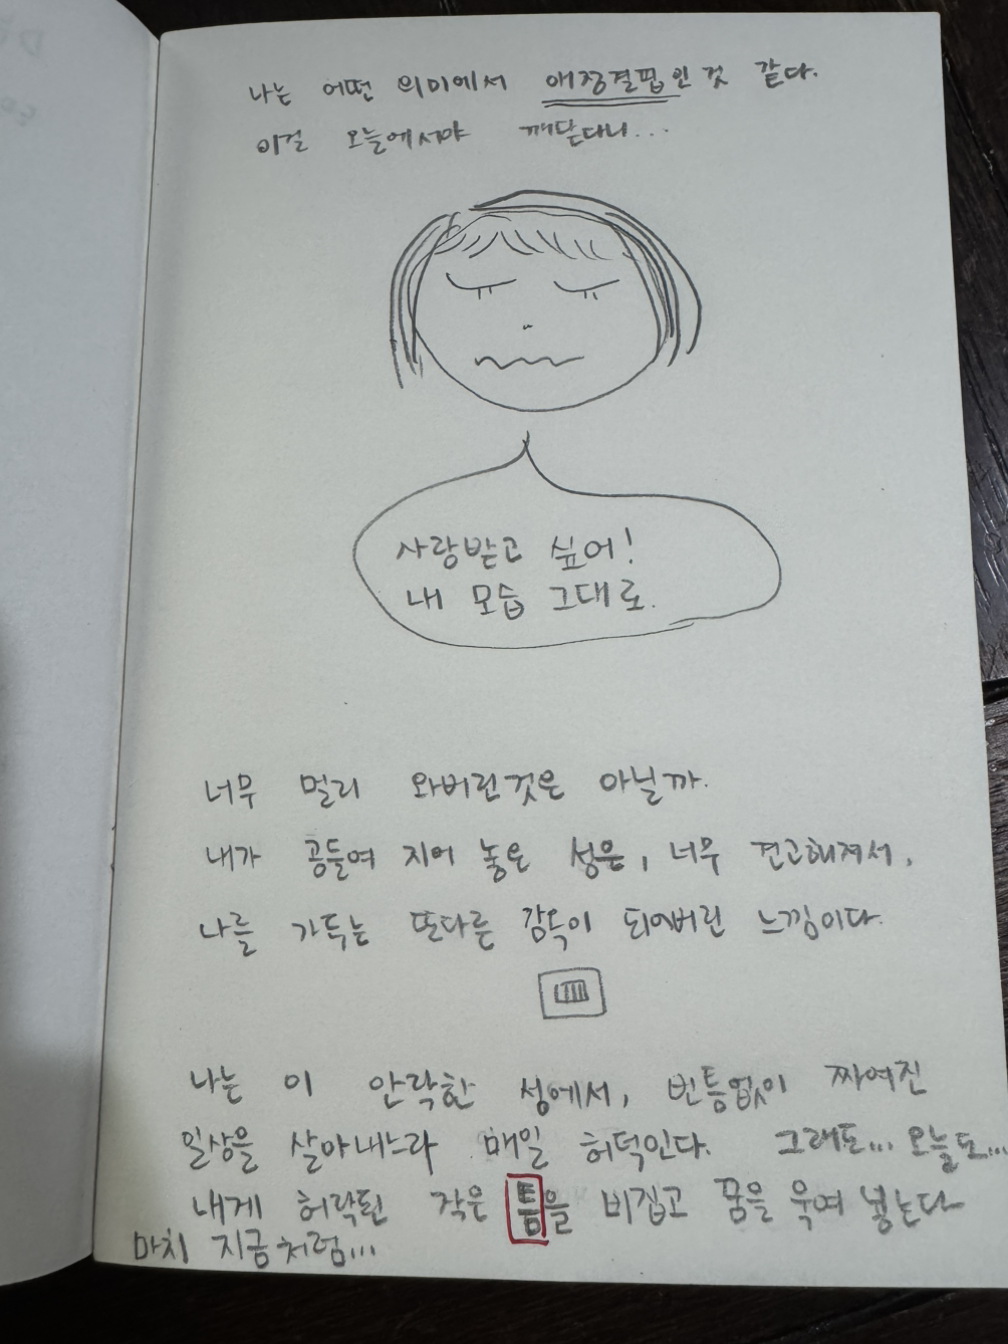 나는 어떤 의미에서 애정결핍인 것 같다.
이걸 오늘에서야 깨닫다니...
사랑받고 싶어!
내 모습 그대로.
너무 멀리 와버린것은 아닐까.
내가 공들여 지어 놓은 성은, 너무 견고해져서,
나를 가두는 또다른 감옥이 되어버린 느낌이다.
나는 이 안락한 성에서, 빈틈없이 짜여진
일상을 살아내느라 매일 허덕인다. 그래도... 오늘도...
내게 허락된 작은 틈을 비집고 꿈을 욱여 넣는다
마치 지금처럼...